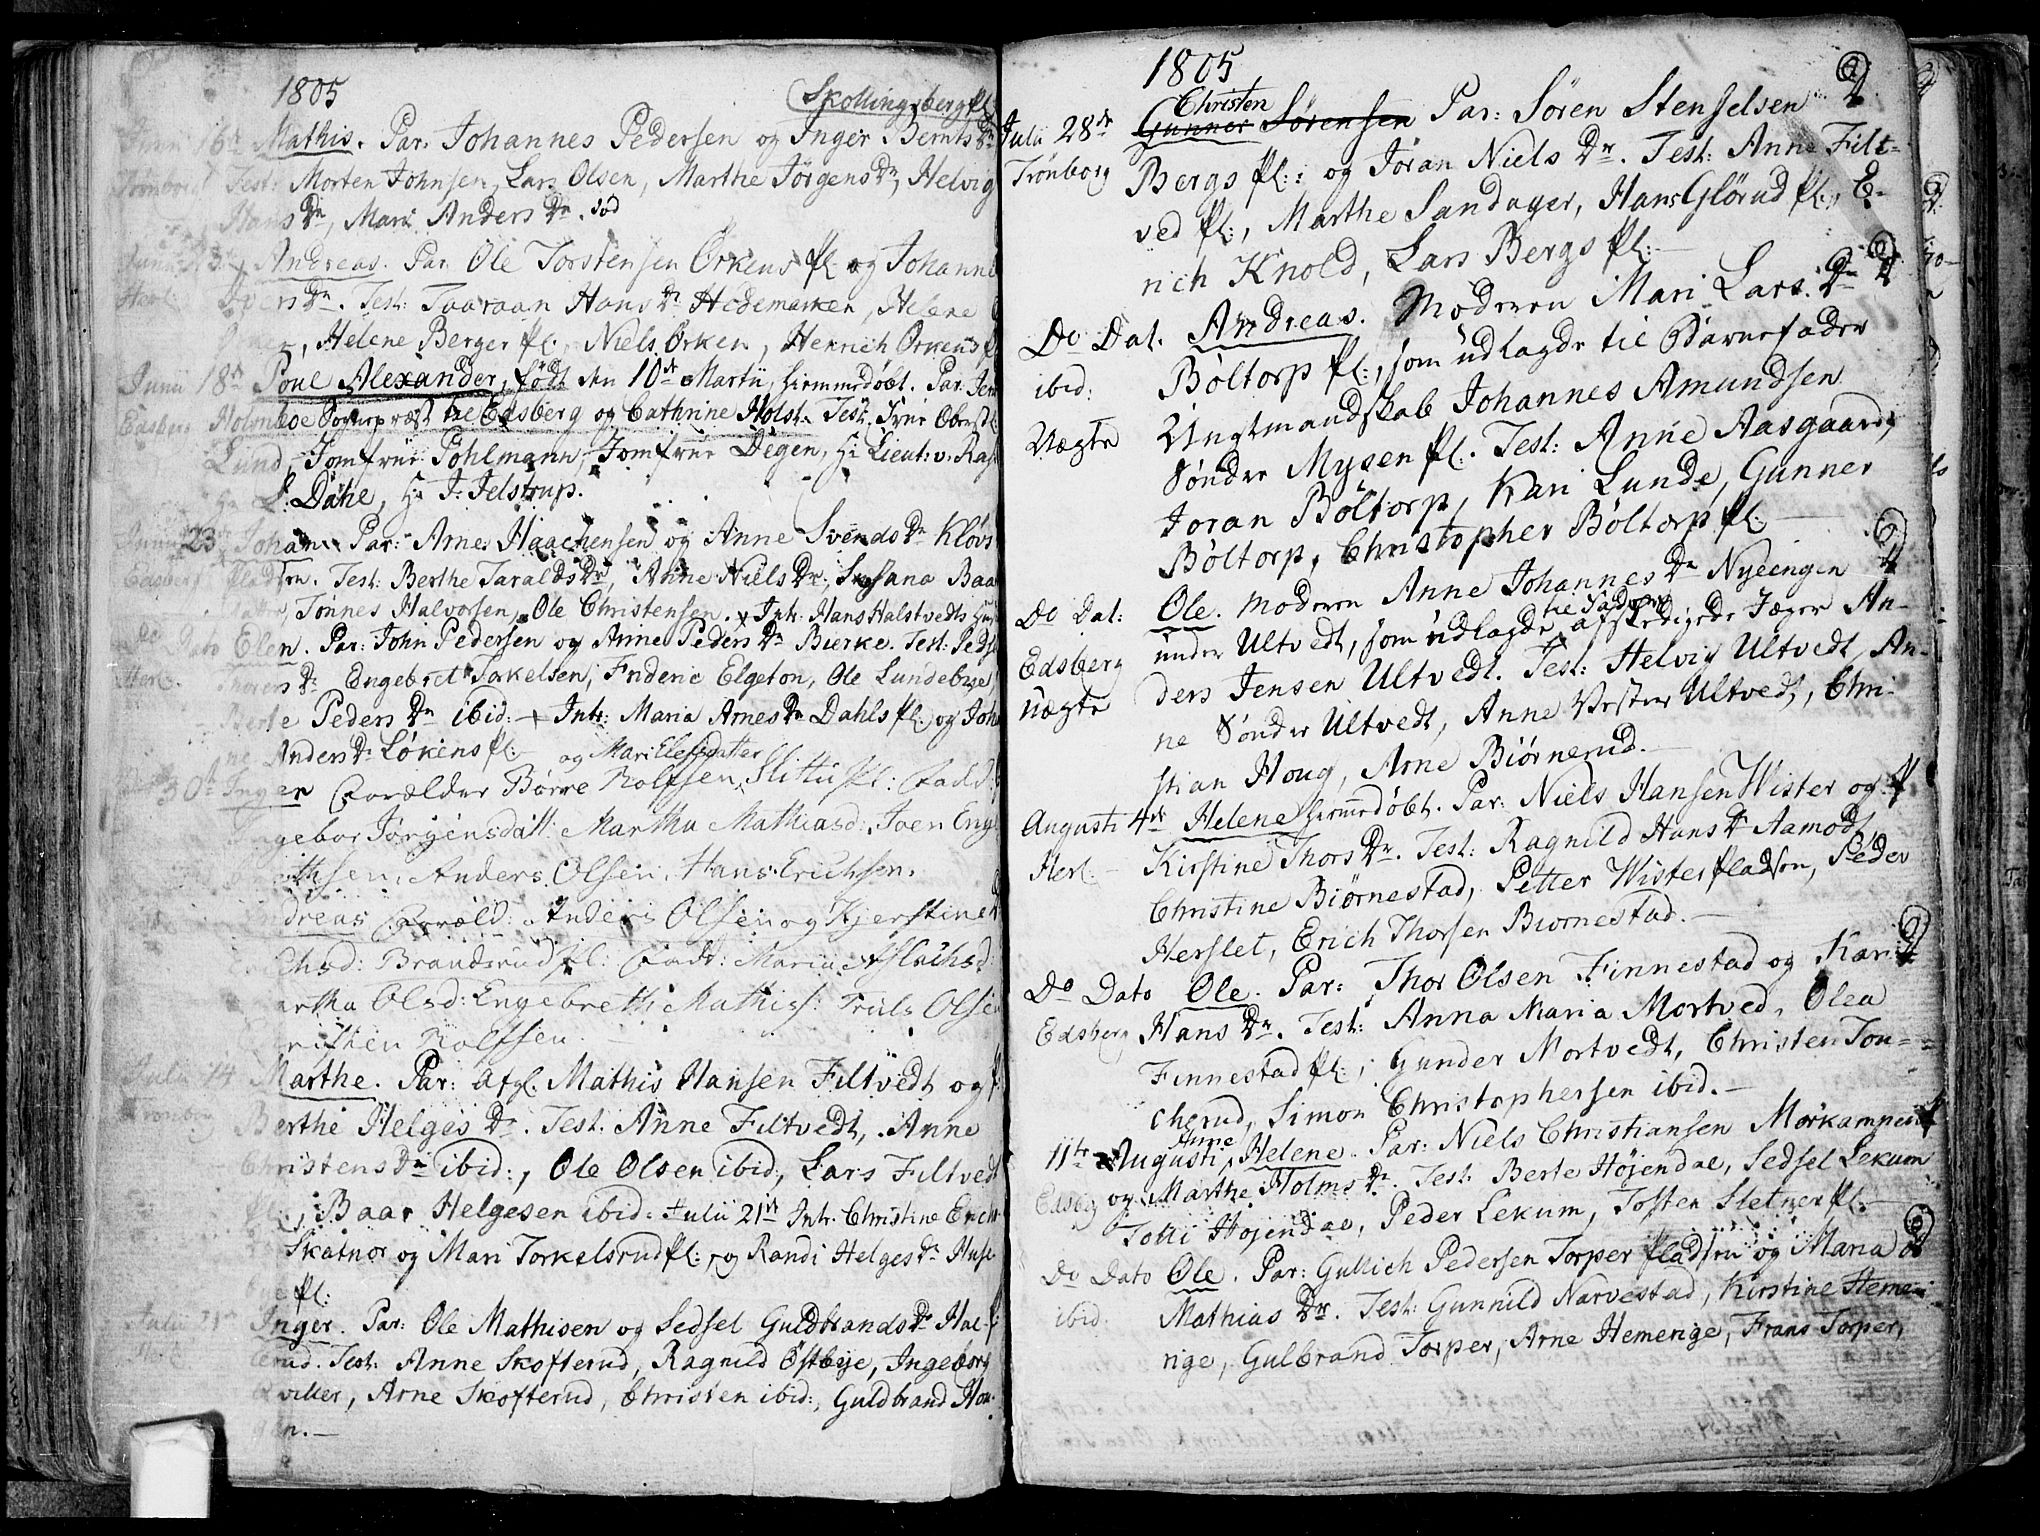 1805
Skollingsberg pl:
Junii 16de Mathis. Par. Johannes Pedersen og Inger Bernts Dr
Trönborg Test: Morten Johnsen, Lars Olsen, Marthe Jörgens Dr, Helvig
Hans Dr, Mari Anders Dr.
Andreas. Par. Ole Torstensen Örkens pl og Johanne
Ivers Dr. Test: Taaraan Hans Dr Hedemarken, Helene
, Helene Berger pl:, Niels Örken, Henrich Örkens
Junii 18de Poul Alexander, född den 10de Martii, hiemmedöbt. Par. Jens
Edsberg Holmboe Sogneprest til Edsberg og Cathrine Holst. Test. Frue Oberst
Lund, Jomfrue Pohlmann, Jomfrue Degen, Hr Lieut: v. Ras
Hr L. Dahe, Hr J. Jelstrup.
Junii 23de Johan. Par: Arne Haachensen og Anne Svends Dr Klövs
Edsberg pladsen. Test: Berthe Taralds Dr, Anne Niels Dr, Susana Baa
, Tönnes Halvorsen, Ole Christensen. Intr. Hans Halstvedts
Do Dato Elen. Par: John Pedersen og Anne Peders Dr Bierke. Test: Sedse
Herl. Thorers Dr Engebret Torkelsen, Frideric Elgeton, Ole Lundebye,
Berte Peders Dr ibid: Intr: Maria Arnes Dr Dahls pl: og Joha
ne Anders Dr Lökens pl:
og Mari Elefsdatter
30te Inger Forælder Börre Rolfsen, Slittu pl: Fadd:
Ingebor Jörgensdatt: Martha Mathiasd: Joen Enge
, Anders Olsen, Hans Erichsen.
Andreas Foræld: Anders Olsen og Kjerstine
: Brandsrud pl: Fadd: Maria Aslachsd:
Martha Olsd: Engebreth Mathiss: Truls Olsen
Rolfsen.
Julii 14 Marthe. Par: afgl. Mathis Hansen Filtvedt og
Tronborg Berthe Helges Dr. Test: Anne Filtvedt, Anne
Christens Dr ibid:, Ole Olsen ibid:, Lars Filtvedt
pl:, Baar Helgesen ibid: Julii 21de Intr. Christine Erichs
Skatnor og Mari Torkelsrud pl: og Randi Helges Dr Huse
bye pl:
Julii 21de Inger. Par: Ole Mathisen og Sedsel Guldbrands Dr Hae
Herl. lerud. Test: Anne Skofterud, Ragnild Östbye, Ingeborg
viller, Arne Skofterud, Christen ibid:, Guldbrand Hou
gen.
1805
Christen
Julii 28de Gunner Sörensen Par: Sören Stenselsen
Trönborg Bergs pl: og Jöran Niels Dr. Test: Anne Filt=
ved pl:, Marthe Sandager, Hans Glörud pl:, E-
rich Knold, Lars Bergs pl:
Do Dat. Andreas. Moderen Mari Lars Dr
ibid: Böltorp pl:, som udlagde til Barnefader
Uægte Ungtmandskab Johannes Amundsen
Sönder Mysen pl:. Test: Anne Aasgaard,
Joran Böltorp, Kari Lunde, Gunner
Böltorp, Christopher Böltorp pl:
Do Dat: Ole. Moderen Anne Johannes Dr Nyeengen
til Fader
Edsberg under Ultvedt, som udlagde afskedigede Jæger An-
uægte ders Jensen Ultvedt. Test: Helvig Ultvedt, An-
ne Sönder Ultvedt, Anne Vester Ultvedt, Chri-
stian Houg, Arne Biörnerud.
Augusti 4de Helene hiemmedöbt. Par: Niels Hansen Wister og
Herl. Kirstine Thors Dr. Test: Ragnild Hans Dr Aamodt,
Christine Biörnestad, Petter Wister pladsen, Peder
Herslet, Erich Thorsen Biornestad.
Do Dato Ole. Par: Thor Olsen Finnestad og Kari
Edsberg Hans Dr. Test: Anna Maria Mortved, Olea
Finnestad pl:, Gunder Mortvedt, Christen Ton-
cherud, Simon Christophersen ibid.
Anne
11te Augusti Helene. Par: Niels Christiansen Morkampen
Edsberg og Marthe Holms Dr. Test: Berte Höjendal, Sedsel Lekum
Tolli Höjendal, Peder Lekum, Tosten Sletner pl:
Do Dato Ole. Par: Gullich Pedersen Torper pladsen og Maria
ibid. Mathias Dr. Test: Gunnild Narvestad, Kirstine Heme-
rige, Gulbrand Torper, Arne Hemerige, Frans Torper,